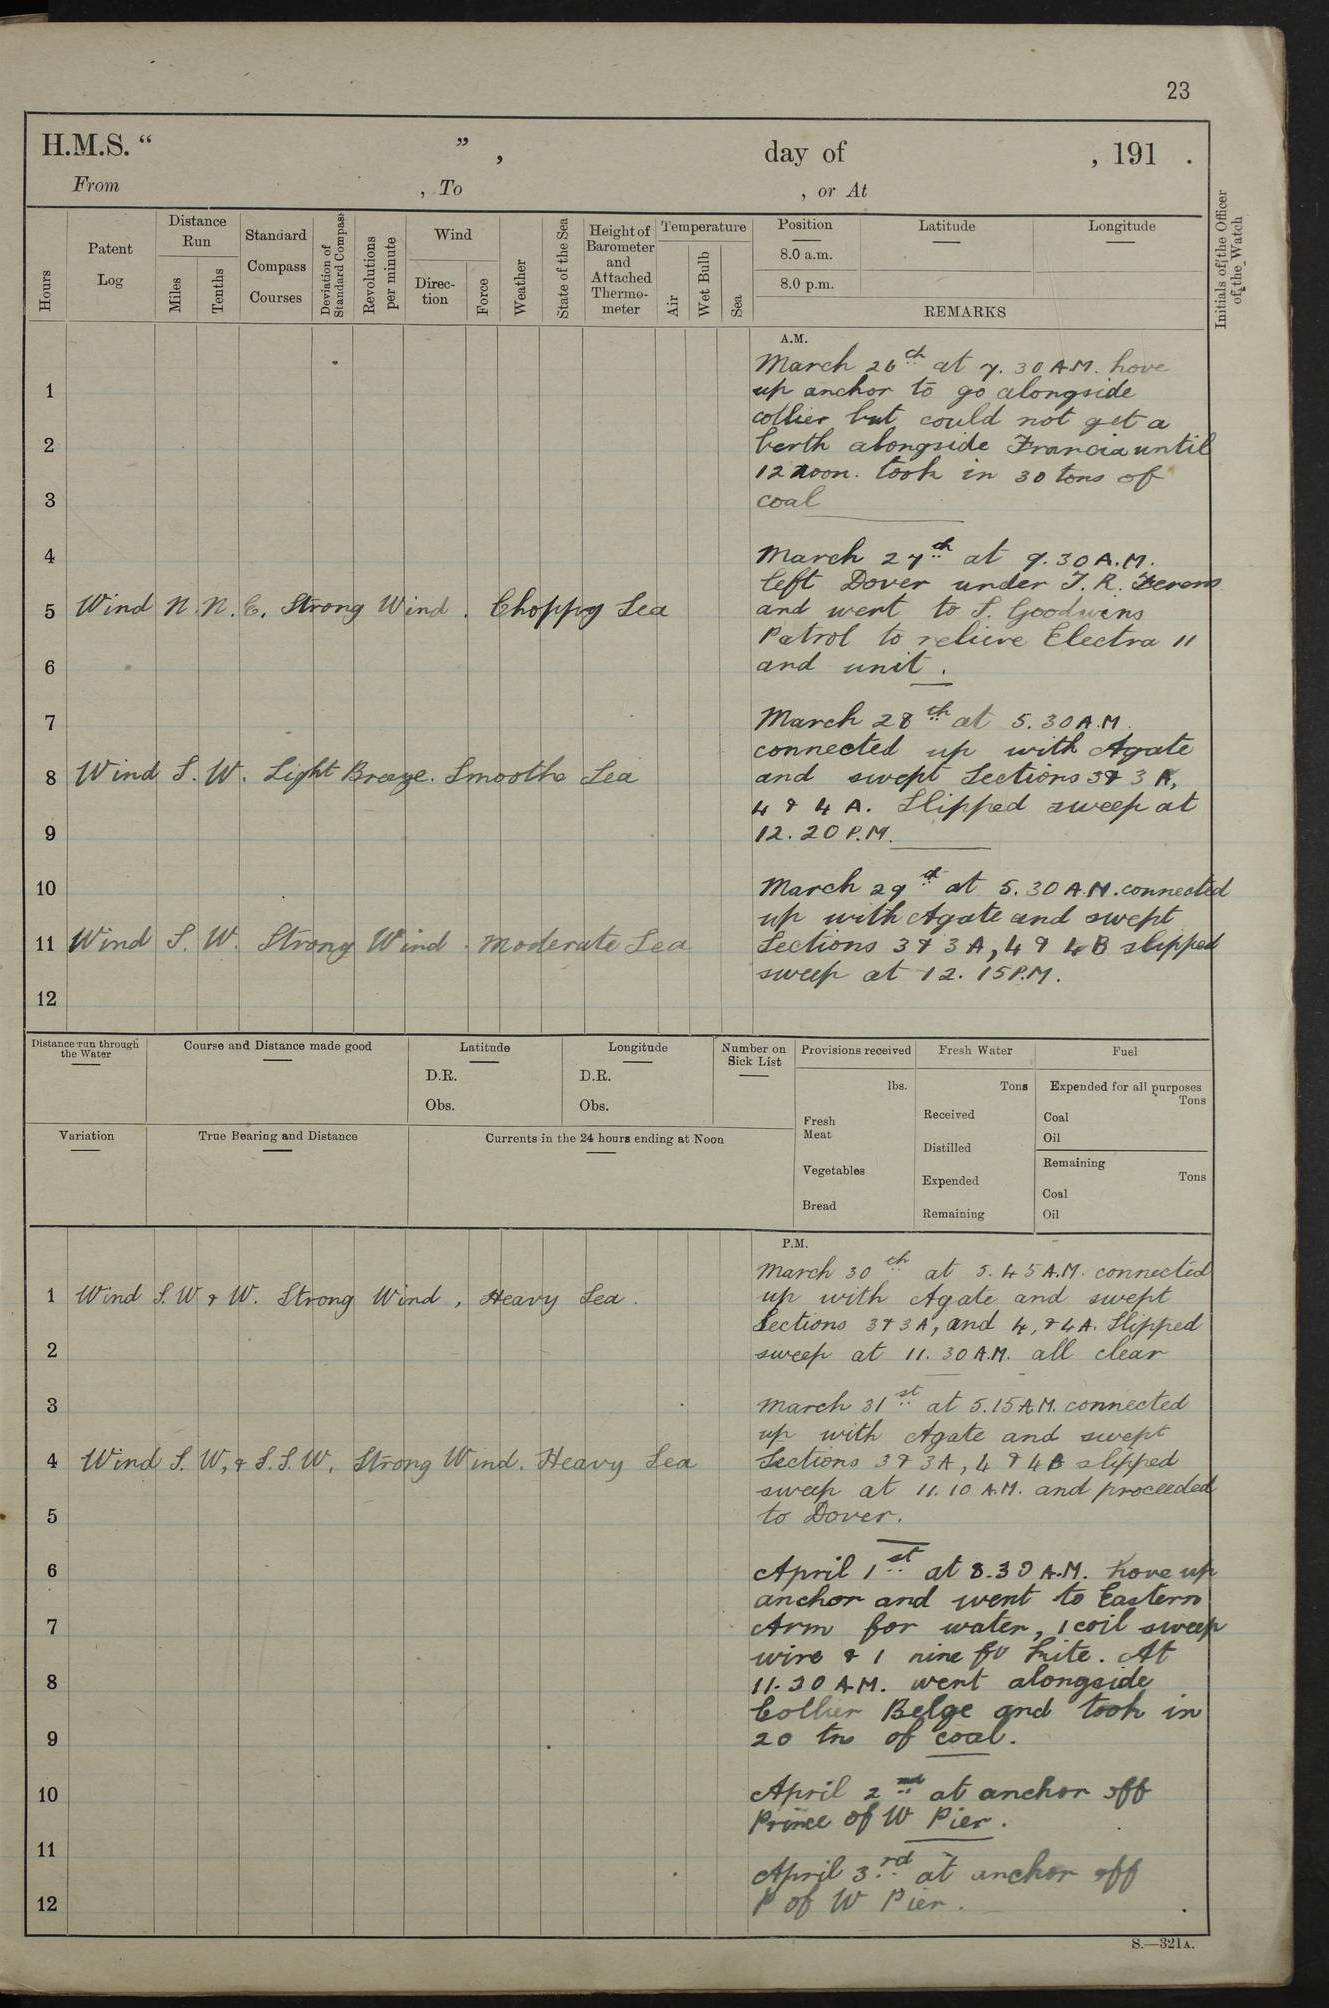 23
H.M.S. “ ” , day of , 191 .
From , To , or At
Hours
Patent Log
Distance Run
Miles
Tenths
Standard Compass Courses
Deviation of Standard Compass
Revolutions per minute
Wind
Direc-tion
Force
Weather
State of the Sea
Height of Barometer and Attached Thermo-meter
Temperature
Air
Wet Bulb
Sea
Position
8.0 a.m.
8.0 p.m.
Latitude
Longitude
REMARKS
Initials of the Officer of the Watch
A.M.
March 26th at 7.30 A.M. hove
1
up anchor to go alongside
collier but could not get a
2
berth alongside Francia until
12 noon. took in 30 tons of
3
coal
4
March 27th at 9.30 A.M.
left Dover under T. R. Ferens
5 Wind N.N.E. Strong Wind. Choppy Sea
and went to S. Goodwins
Patrol to relieve Electra 11
6
and unit.
7
March 28th at 5.30 A.M.
connected up with Agate
8 Wind S.W. Light Breeze. Smooth Sea
and swept Sections 3 & 3 A,
4 & 4 A. Slipped sweep at
9
12.20 P.M.
10
March 29th at 5.30 A.M. connected
up with Agate and swept
11 Wind S.W. Strong Wind. Moderate Sea
Sections 3 & 3 A, 4 & 4 B slipped
sweep at 12.15 P.M.
12
Distance run through the Water
Course and Distance made good
Latitude
D.R.
Obs.
Longitude
D.R.
Obs.
Number on Sick List
Provisions received
lbs.
Fresh Meat
Vegetables
Bread
Fresh Water
Tons
Received
Distilled
Expended
Remaining
Fuel
Expended for all purposes
Tons
Coal
Oil
Remaining
Tons
Coal
Oil
Variation
True Bearing and Distance
Currents in the 24 hours ending at Noon
P.M.
March 30th at 5.45 A.M. connected
1 Wind S.W & W. Strong Wind, Heavy Sea.
up with Agate and swept
Sections 3 & 3 A, and 4, & 4 A. Slipped
2
sweep at 11.30 A.M. all clear
3
March 31st at 5.15 A.M. connected
up with Agate and swept
4 Wind S.W, & S.S.W, Strong Wind. Heavy Sea
Sections 3 & 3 A, 4 & 4 B slipped
sweep at 11.10 A.M. and proceeded
5
to Dover.
6
April 1st at 8.30 A.M. hove up
anchor and went to Eastern
7
Arm for water, 1 coil sweep
wire & 1 nine ft kite. At
8
11.30 A.M. went alongside
Collier Belge and took in
9
20 tns of coal.
10
April 2nd at anchor off
Prince of W Pier.
11
April 3rd at anchor off
12
P of W Pier.
S.—321A.